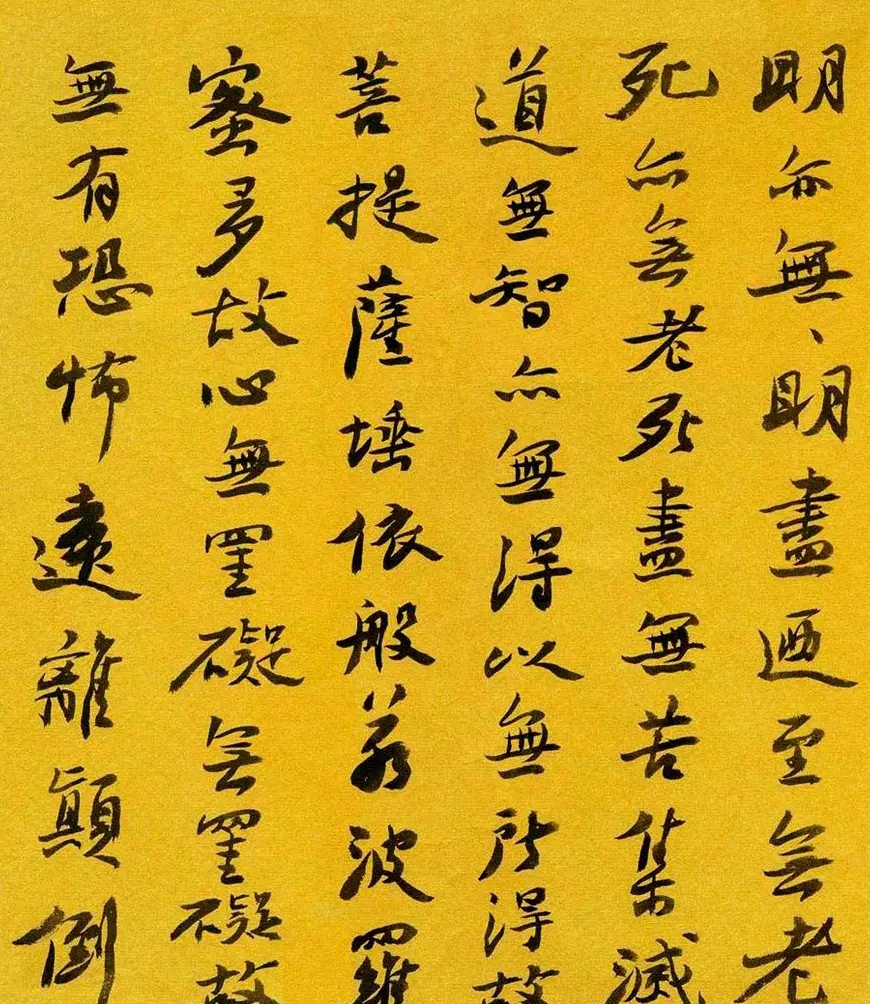 明亦無、明盡迺至無老
死亦無老死盡無苦集滅
道無智亦無得以無所得故
菩提薩埵依般若波羅
蜜多故心無罣礙無罣礙故
無有恐怖遠離顛倒